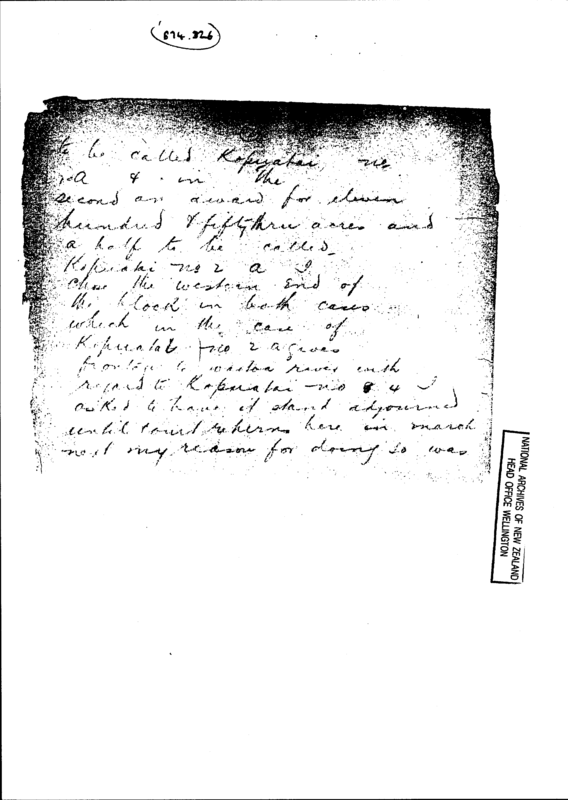 674.826
to be called Kopuatai no
A & in the
second an award for eleven
hundred & fifty three acres and
a half to be called
Kopuatai no 2 a I
chose the western end of
the block in both cases
which in the case of
Kopuatai no 2 a gives
frontage to river with
regard to Kopuatai no 4 I
asked to have it stand adjourned
until Court returns here in march
next my reason for doing so was
NATIONAL ARCHIVES OF NEW ZEALAND
HEAD OFFICE WELLINGTON